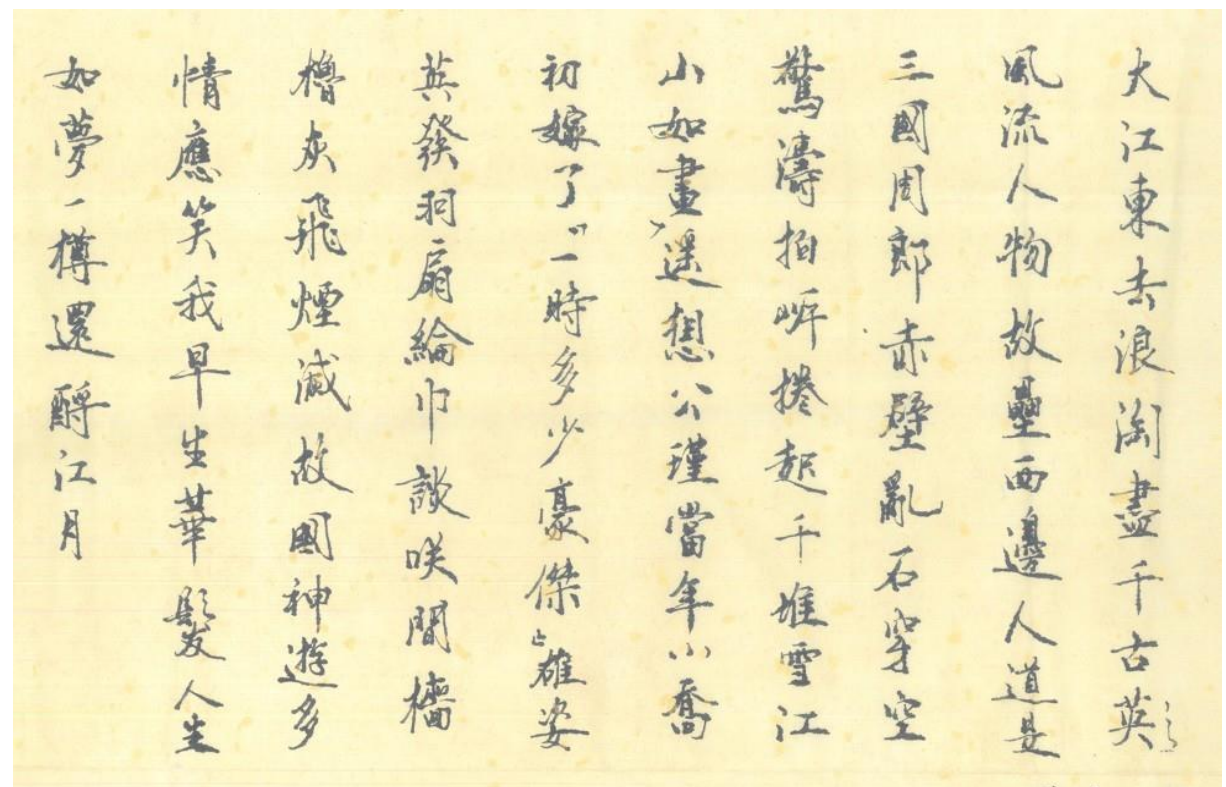 大江東去浪淘盡千古英
風流人物故壘西邊人道是
三國周郎赤壁亂石穿空
驚濤拍岸捲起千堆雪江
山如畫遙想公瑾當年小喬
初嫁了一時多少豪傑雄姿
英發羽扇綸巾談咲間檣
櫓灰飛煙滅故國神遊多
情應笑我早生華髮人生
如夢一樽還酹江月